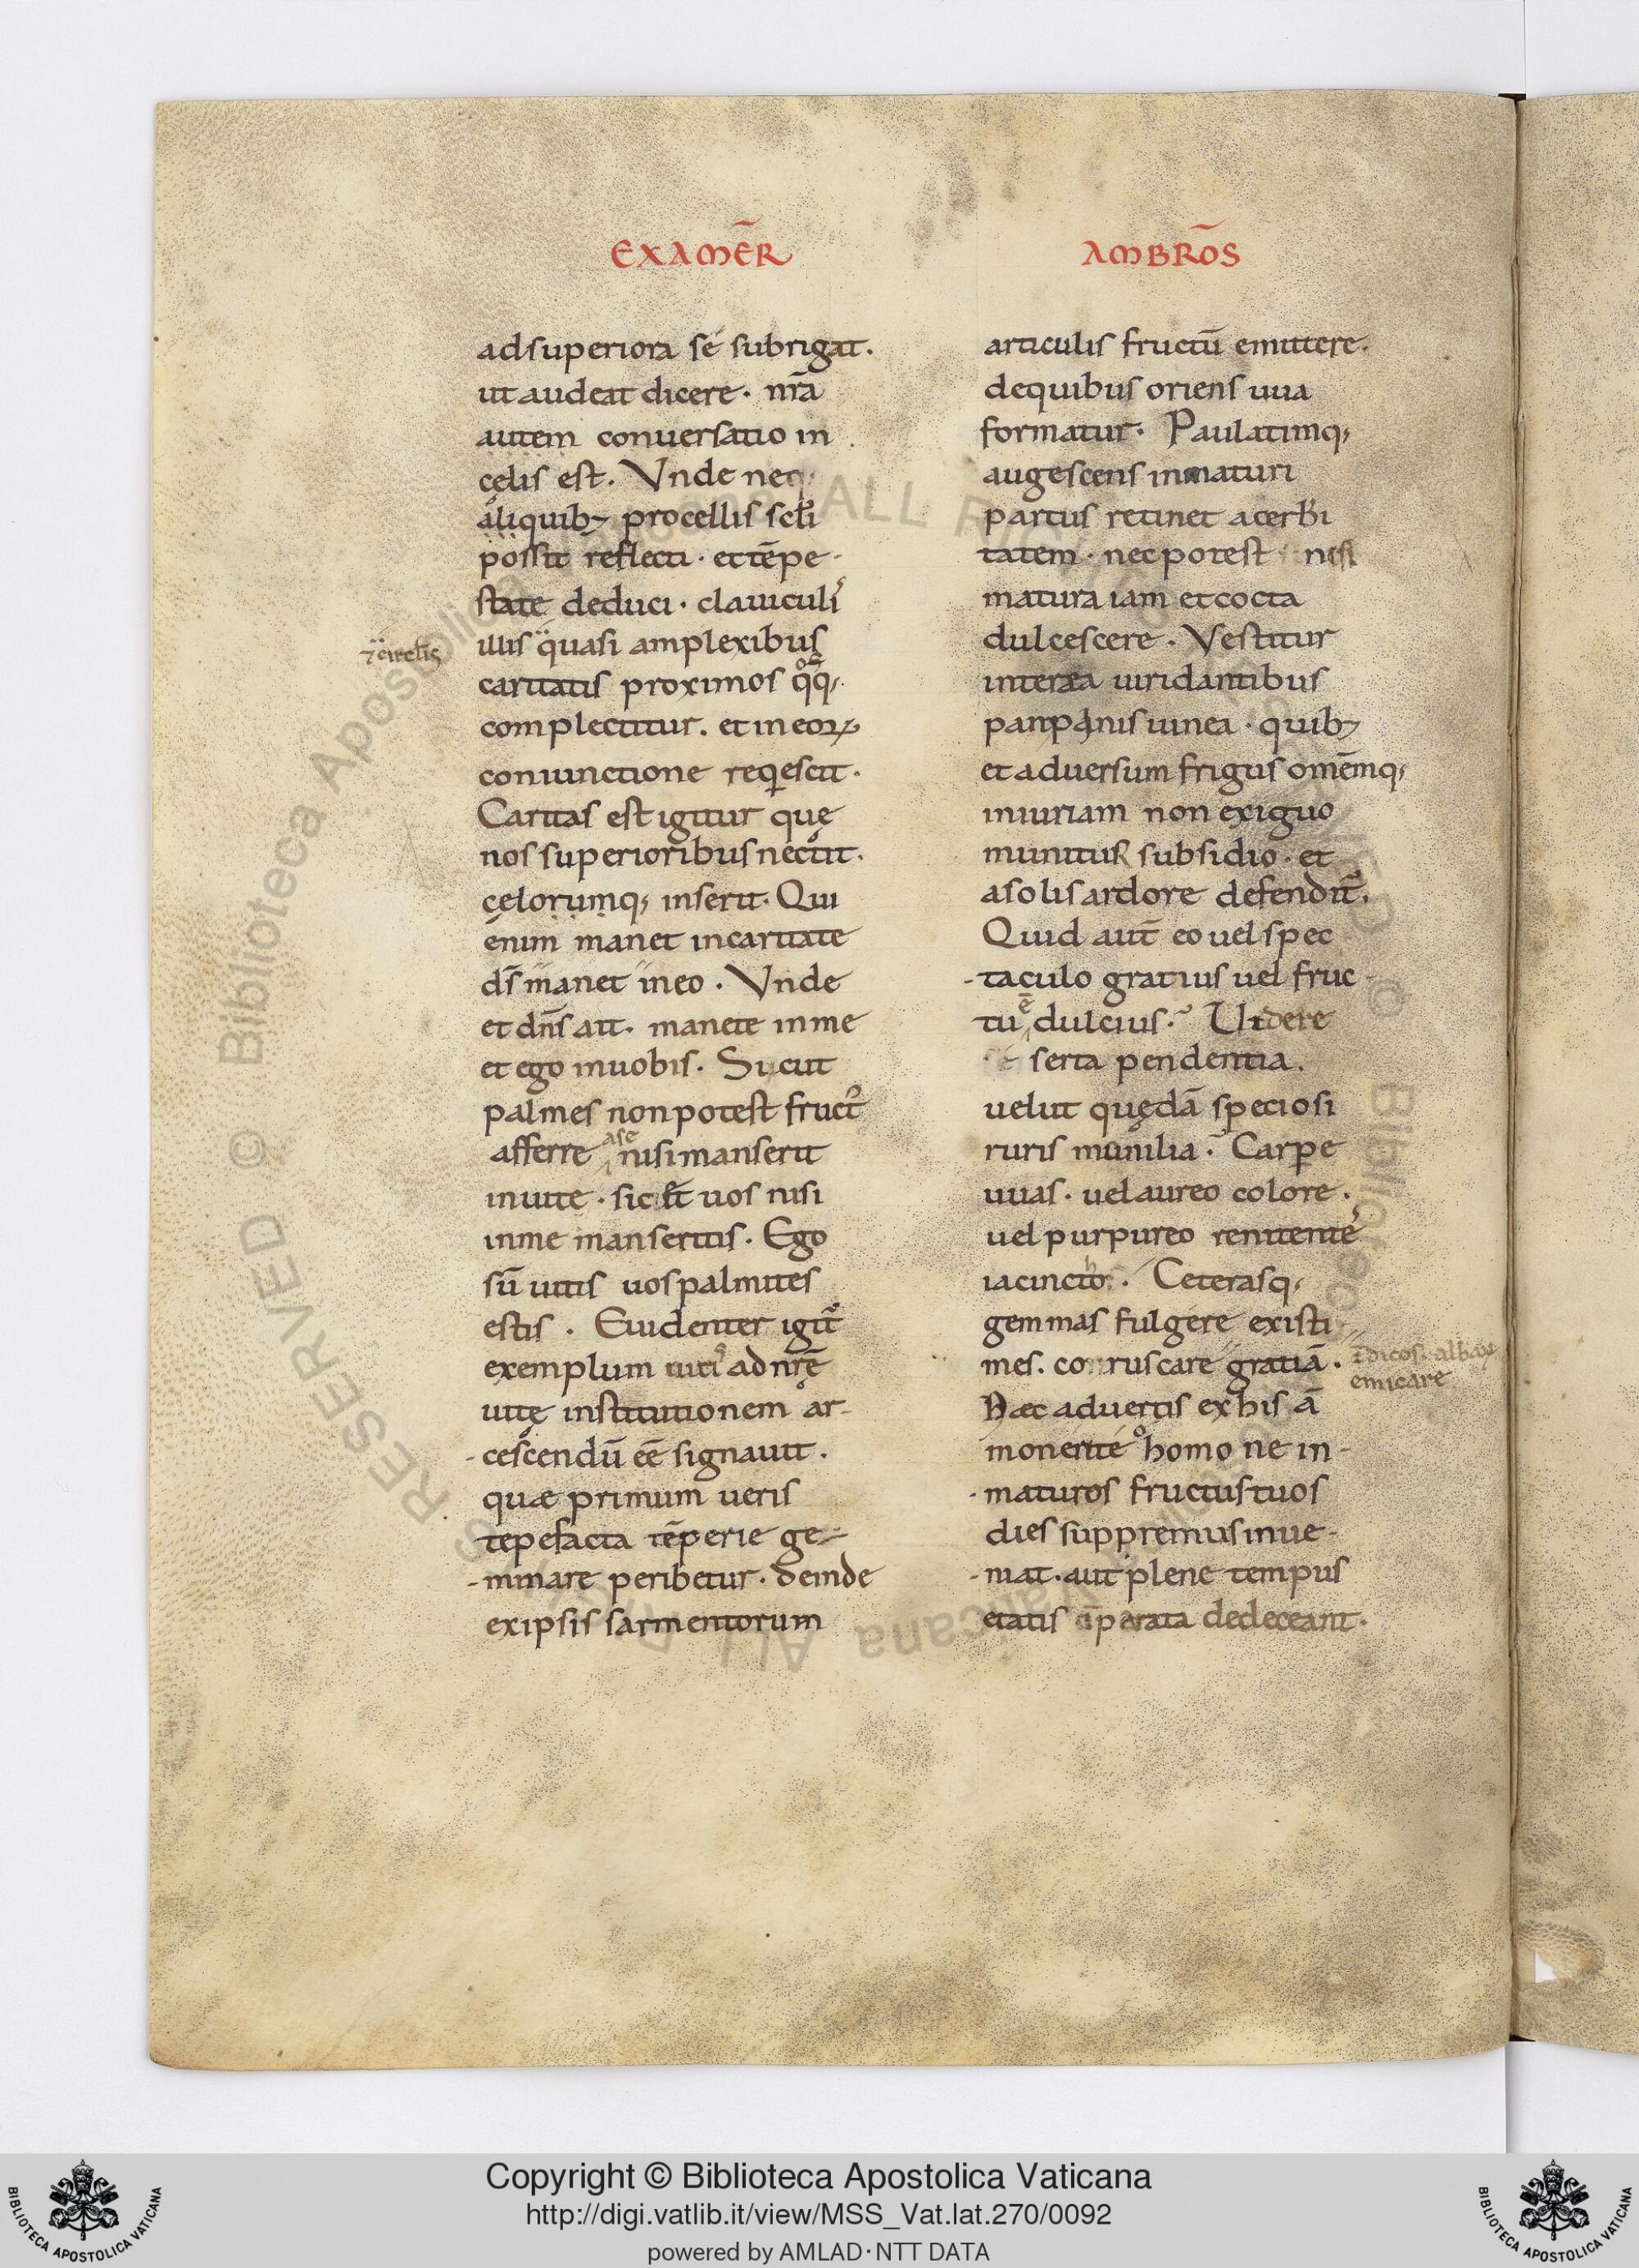 EXAMER̄
ad superiora se subrigat.
ut audeat dicere. nr̄a
autem conuersatio in
cęlis est. Vnde neq;
aliquibꝫ procellis scl̄i
possit reflecti. et tēpe-
state deduci. clauiculis
⁊ circl̄is
illis quasi amplexibus
caritatis proximos qͦsq;
complectitur. et in eoꝝ
coniunctione reqescit.
Caritas est igitur quę
nos superioribus nectit.
cęlorumq; inserit. Qui
enim manet in caritate
ds̄ manet in eo. Vnde
et dn̄s ait. manete in me
et ego in uobis. Sicut
palmes non potest fruct̄
afferre a se nisi manserit
in uite. sic et uos nisi
in me manseritis. Ego
sū uitis uos palmites
estis. Euidenter igit̄
exemplum uitis ad nr̄ę
uitę institutionem ar-
-cescendū eē signauit.
quæ primum ueris
tepefacta tēperie ge-
-minare peribetur. deinde
ex ipsis sarmentorum
AMBRŌS
articulis fructū emittere.
de quibus oriens uua
formatur. Paulatimq;
augescens inmaturi
partus retinet acerbi
tatem. nec potest nisi
matura iam et cocta
dulcescere. Vestitur
interea uiridantibus
panpanis uinea. quibꝫ
et aduersum frigus omēmq;
iniuriam non exiguo
munitus subsidio. et
a solis ardore defendit̄.
Quid aut̄ eo uel spec
-taculo gratius uel fruc-
tu ē dulcius. Uidere
serta pendentia.
uelut quędā speciosi
ruris munilia. Carpe
uuas. uel aureo colore.
uel purpureo renitentes
iacincto. Ceterasq;
gemmas fulgere existi
mes. coruscare gratiā.
īdicos. albaꝝ
emicare
Hæc aduertis ex his ā
monente homo ne in-
-maturos fructus tuos
dies suppremus inue-
-niat. aut plene tempus
etatis īperata dedeceant.
Copyright © Biblioteca Apostolica Vaticana
http://digi.vatlib.it/view/MSS_Vat.lat.270/0092
powered by AMLAD·NTT DATA
BIBLIOTECA APOSTOLICA VATICANA
BIBLIOTECA APOSTOLICA VATICANA